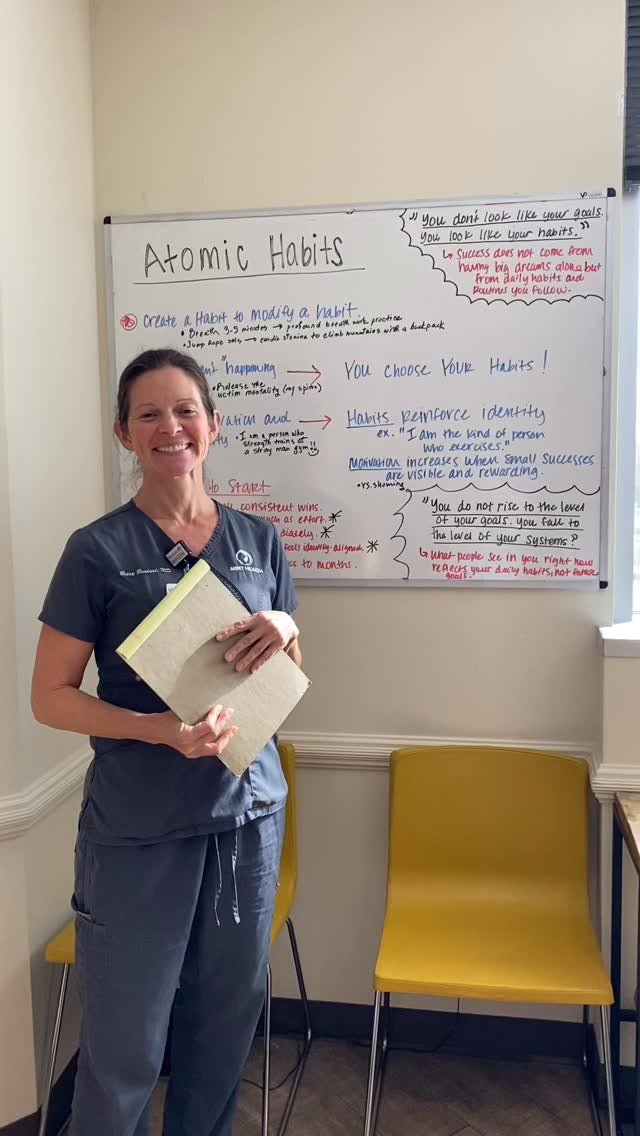 Atomic Habits
"You don't look like your goals.
You look like your habits."
↳ Success does not come from
having big dreams alone but
from daily habits and
routines you follow.
Create a Habit to modify a habit.
• Breath 3-5 minutes → profound breath work practice
• Jump Rope → cardio stamina to climb mountains with a backpack
"happening → You Choose Your Habits!
• Release the
mentality (my spine)
and → Habits reinforce identity
• I am a person who
strength trains at
a strong man gym!!
ex. "I am the kind of person
who exercises."
Motivation increases when small successes
are visible and rewarding.
• vs. showing
to Start
consistent wins.
as effort. *
*
feels identity-aligned. *
to months.
"You do not rise to the level
of your goals. You fall to
the level of your systems"
↳ What people see in you right now
reflects your daily habits, not future
goals.
MD
HEALTH